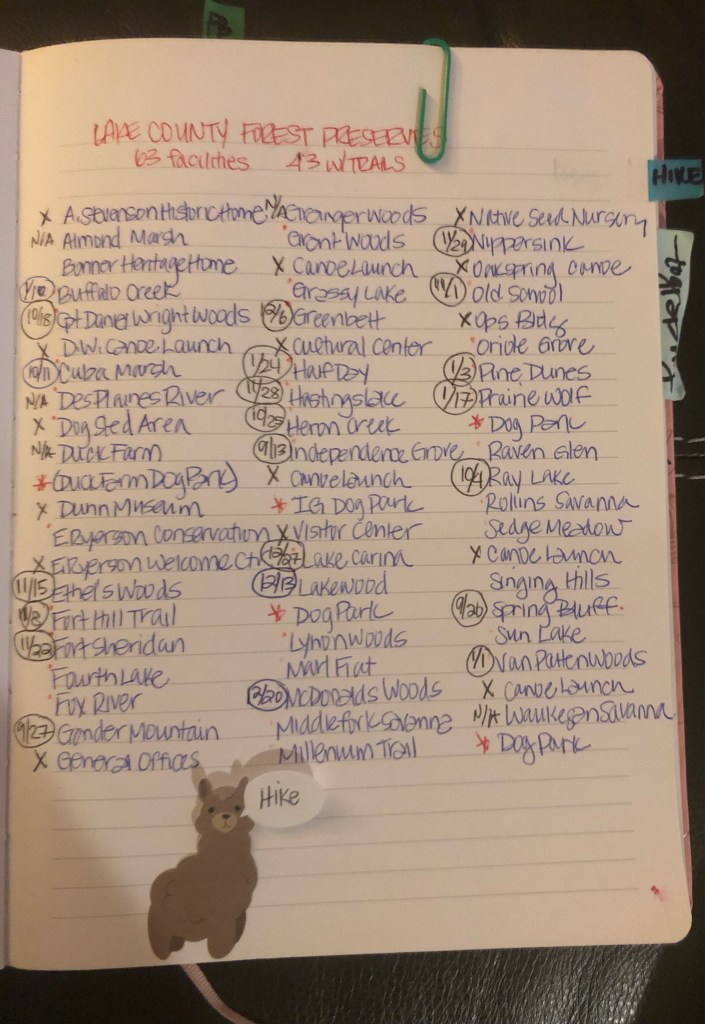 LAKE COUNTY FOREST PRESERVES
63 facilities 43 W/TRAILS
HIKE
X A. Stevenson Historic Home
N/A Almond Marsh
Bonner Heritage Home
1/10 Buffalo Creek
10/18 Cpt Daniel Wright Woods
X D.W. Canoe Launch
10/11 Cuba Marsh
N/A Des Plaines River
X Dog Sled Area
N/A Duck Farm
* (Duck Farm Dog Park)
X Dunn Museum
E. Ryerson Conservation
X E. Ryerson Welcome Ctr
11/15 Ethel's Woods
11/8 Fort Hill Trail
11/22 Fort Sheridan
Fourth Lake
Fox River
9/27 Gander Mountain
X General Offices
N/A Grainger Woods
Grant Woods
X Canoe Launch
Grassy Lake
12/6 Greenbelt
X Cultural Center
1/24 Half Day
11/28 Hastings Lake
10/25 Heron Creek
9/13 Independence Grove
X Canoe Launch
* IG Dog Park
X Visitor Center
12/27 Lake Carina
12/13 Lakewood
* Dog Park
Lyons Woods
Marl Flat
12/20 McDonalds Woods
Middlefork Savanna
Millenium Trail
X Native Seed Nursery
11/29 Nippersink
X Oakspring Canoe
11/1 Old School
X Ops Bldg
Oriole Grove
1/3 Pine Dunes
1/17 Prairie Wolf
* Dog Park
Raven Glen
10/4 Ray Lake
Rollins Savanna
Sedge Meadow
X Canoe Launch
Singing Hills
9/20 Spring Bluff
Sun Lake
1/1 Van Patten Woods
X Canoe Launch
N/A Waukegan Savanna
* Dog Park
Hike